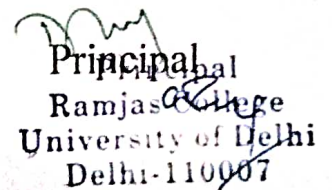 Principal
Principal
Ramjas College
University of Delhi
Delhi-110007